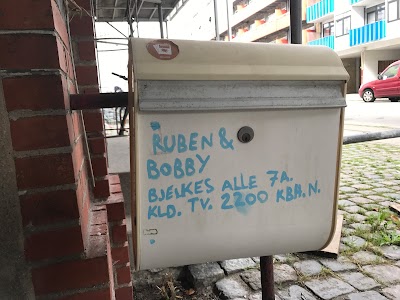 RUBEN &
BOBBY
BJELKES ALLE 7A.
KLD. TV. 2200 KBH. N.